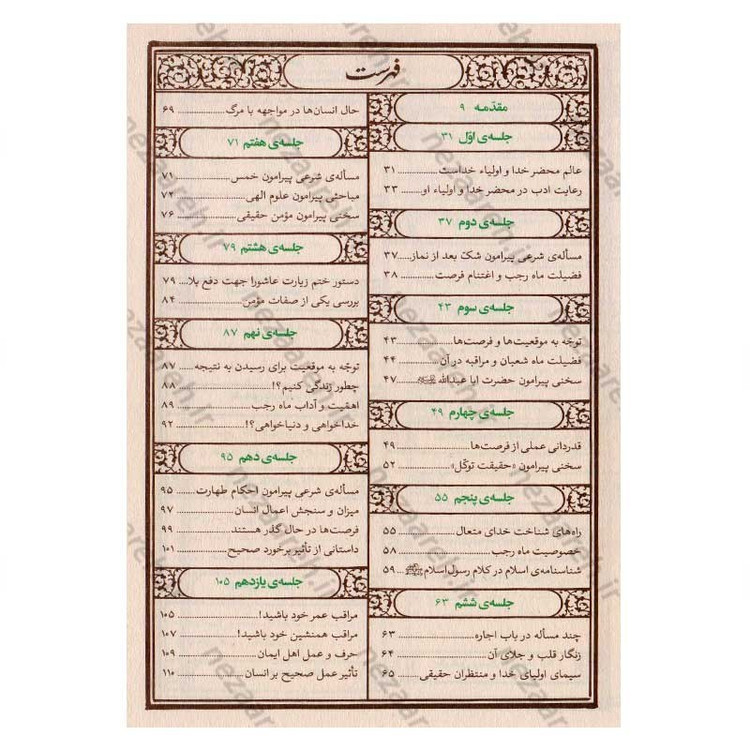 فهرست
مقدّمه ۹
جلسه‌ی اوّل ۳۱
عالم محضر خدا و اولیاء خداست ۳۱
رعایت ادب در محضر خدا و اولیاء او ۳۳
جلسه‌ی دوم ۳۷
مسأله‌ی شرعی پیرامون شکّ بعد از نماز ۳۷
فضیلت ماه رجب و اغتنام فرصت ۳۸
جلسه‌ی سوم ۴۳
توجّه به موقعیت‌ها و فرصت‌ها ۴۳
فضیلت ماه شعبان و مراقبه در آن ۴۴
سخنی پیرامون حضرت ابا عبدالله ۴۷
جلسه‌ی چهارم ۴۹
قدردانی عملی از فرصت‌ها ۴۹
سخنی پیرامون «حقیقت توکّل» ۵۲
جلسه‌ی پنجم ۵۵
راه‌های شناخت خدای متعال ۵۵
خصوصیت ماه رجب ۵۸
شناسنامه‌ی اسلام در کلام رسول اسلام ۵۹
جلسه‌ی ششم ۶۳
چند مسأله در باب اجاره ۶۳
زنگار قلب و جلای آن ۶۴
سیمای اولیای خدا و منتظران حقیقی ۶۵
حال انسان‌ها در مواجهه با مرگ ۶۹
جلسه‌ی هفتم ۷۱
مسأله‌ی شرعی پیرامون خمس ۷۱
مباحثی پیرامون علوم الهی ۷۲
سخنی پیرامون مؤمن حقیقی ۷۶
جلسه‌ی هشتم ۷۹
دستور ختم زیارت عاشورا جهت دفع بلا ۷۹
بررسی یکی از صفات مؤمن ۸۴
جلسه‌ی نهم ۸۷
توجّه به موقعیت برای رسیدن به نتیجه ۸۷
چطور زندگی کنیم؟! ۸۸
اهمّیت و آداب ماه رجب ۸۹
خداخواهی و دنیاخواهی؟! ۹۲
جلسه‌ی دهم ۹۵
مسأله‌ی شرعی پیرامون احکام طهارت ۹۵
میزان و سنجش اعمال انسان ۹۷
فرصت‌ها در حال گذر هستند ۹۹
داستانی از تأثیر برخورد صحیح ۱۰۱
جلسه‌ی یازدهم ۱۰۵
مراقب عمر خود باشید! ۱۰۵
مراقب همنشین خود باشید! ۱۰۷
حرف و عمل اهل ایمان ۱۰۹
تأثیر عمل صحیح بر انسان ۱۱۰
nezaareh.ir